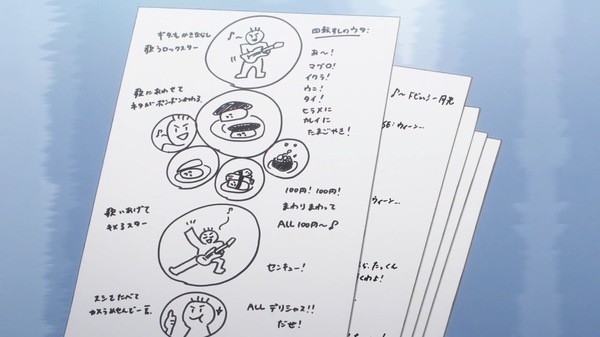 ギターもかきならし
歌うロックスター
回転すしのウタ:
お〜!
マグロ!
イクラ!
ウニ!
タイ!
ヒラメに
カレイに
たまごやき!
歌にあわせて
ネタがポンポンかわる。
100円! 100円!
まわりまわって
ALL100円〜♪
歌いあげて
キメるスター
センキュー!
スシをたべて
カメラめせんで一言。
ALL デリシャス!!
だぜ!
月光
ウィーン…
ウィーン…
たっくん
くわよ!